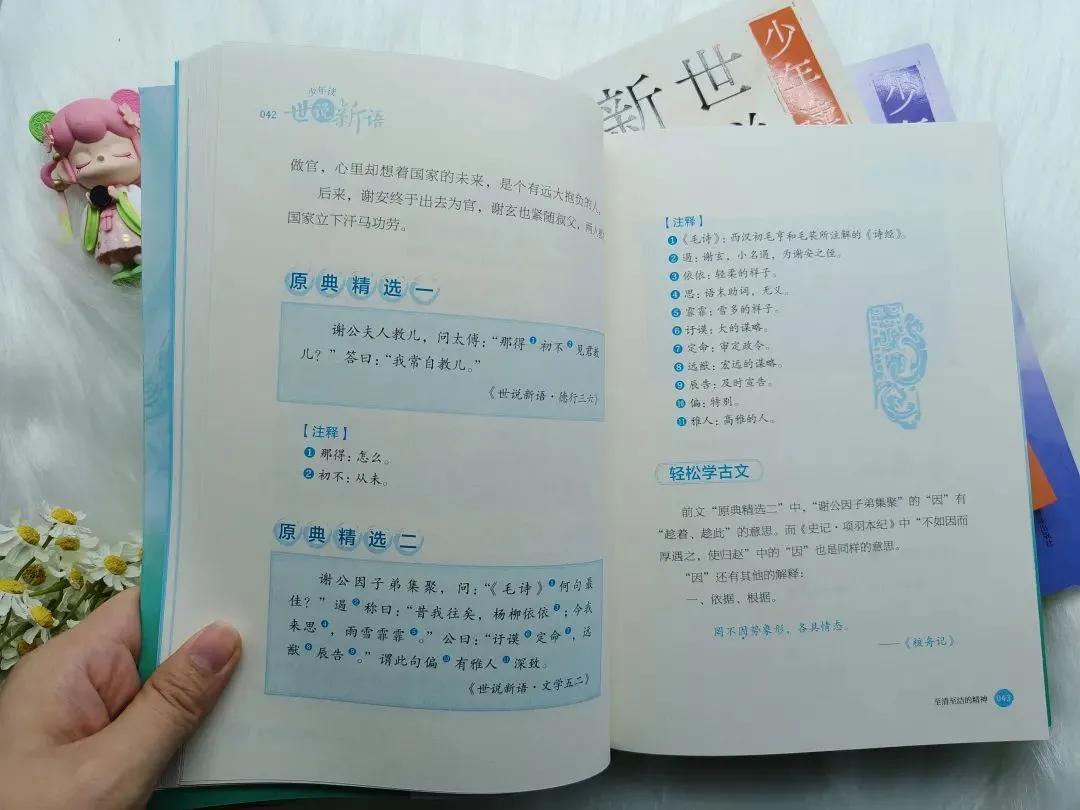 042
少年读
世说新语
做官，心里却想着国家的未来，是个有远大抱负的人。
后来，谢安终于出去为官，谢玄也紧随叔父，两人
国家立下汗马功劳。
原典精选一
谢公夫人教儿，问太傅：“那得❶初不❷见君教
儿？”答曰：“我常自教儿。”
《世说新语·德行三六》
【注释】
❶ 那得：怎么。
❷ 初不：从未。
原典精选二
谢公因子弟集聚，问：“《毛诗》❶何句最
佳？”遏❷称曰：“昔我往矣，杨柳依依❸；今我
来思❹，雨雪霏霏❺。”公曰：“讦谟❻定命❼，远
猷❽辰告❾。”谓此句偏❿有雅人⓫深致。
《世说新语·文学五二》
新
世
少年读
少年
【注释】
❶《毛诗》：西汉初毛亨和毛苌所注解的《诗经》。
❷ 遏：谢玄，小名遏，为谢安之侄。
❸ 依依：轻柔的样子。
❹ 思：语末助词，无义。
❺ 霏霏：雪多的样子。
❻ 讦谟：大的谋略。
❼ 定命：审定政令。
❽ 远猷：宏远的谋略。
❾ 辰告：及时宣告。
❿ 偏：特别。
⓫ 雅人：高雅的人。
轻松学古文
前文“原典精选二”中，“谢公因子弟集聚”的“因”有
“趁着、趁此”的意思。而《史记·项羽本纪》中“不如因而
厚遇之，使归赵”中的“因”也是同样的意思。
“因”还有其他的解释：
一、依据、根据。
罔不因势象形，各具情态。
——《核舟记》
至清至洁的精神 043